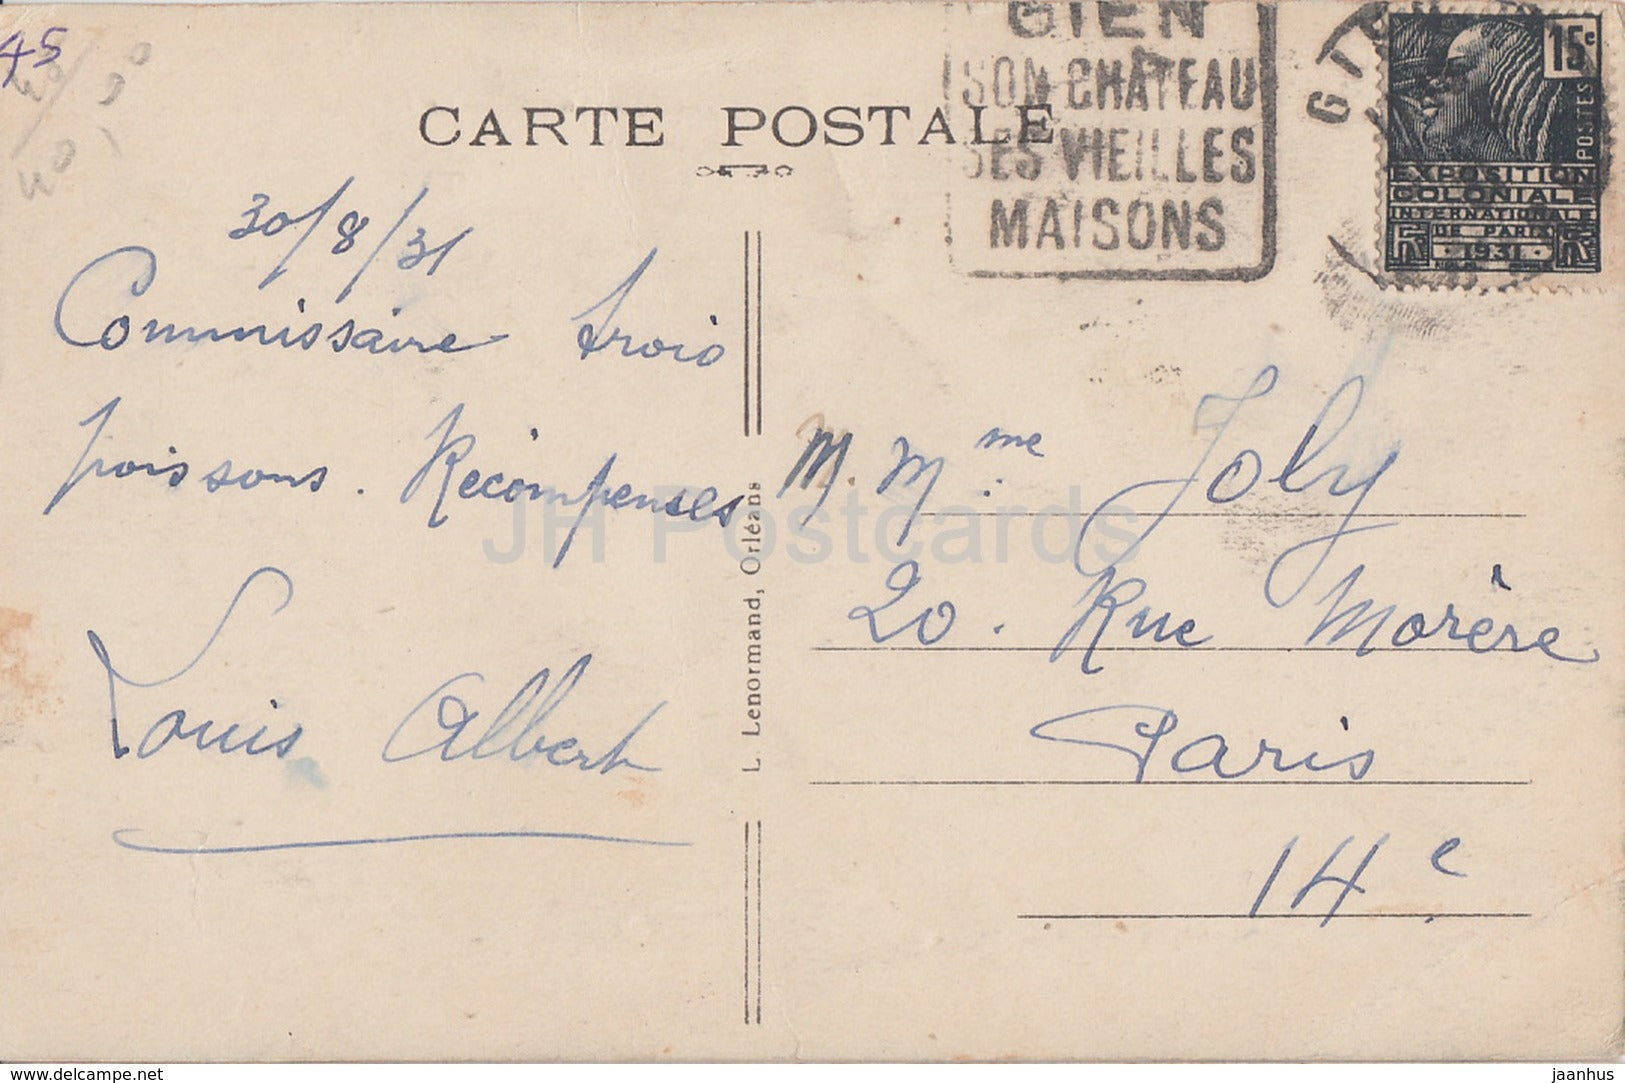 45
CARTE POSTALE
GIEN
SON CHÂTEAU
SES VIEILLES
MAISONS
GI
15c
POSTES
EXPOSITION
COLONIALE
INTERNATIONALE
DE PARIS
·1931·
30/8/31
Commissaire trois
poissons. Récompenses
Louis Albert
L. Lenormand, Orléans
M. Mme. Joly
20. Rue Morère
Paris
14e.
JH Postcards
delcampe.net
jaanhus